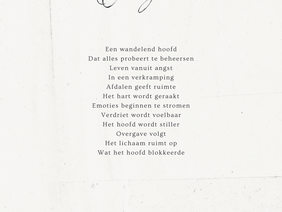 Een wandelend hoofd
Dat alles probeert te beheersen
Leven vanuit angst
In een verkramping
Afdalen geeft ruimte
Het hart wordt geraakt
Emoties beginnen te stromen
Verdriet wordt voelbaar
Het hoofd wordt stiller
Overgave volgt
Het lichaam ruimt op
Wat het hoofd blokkeerde